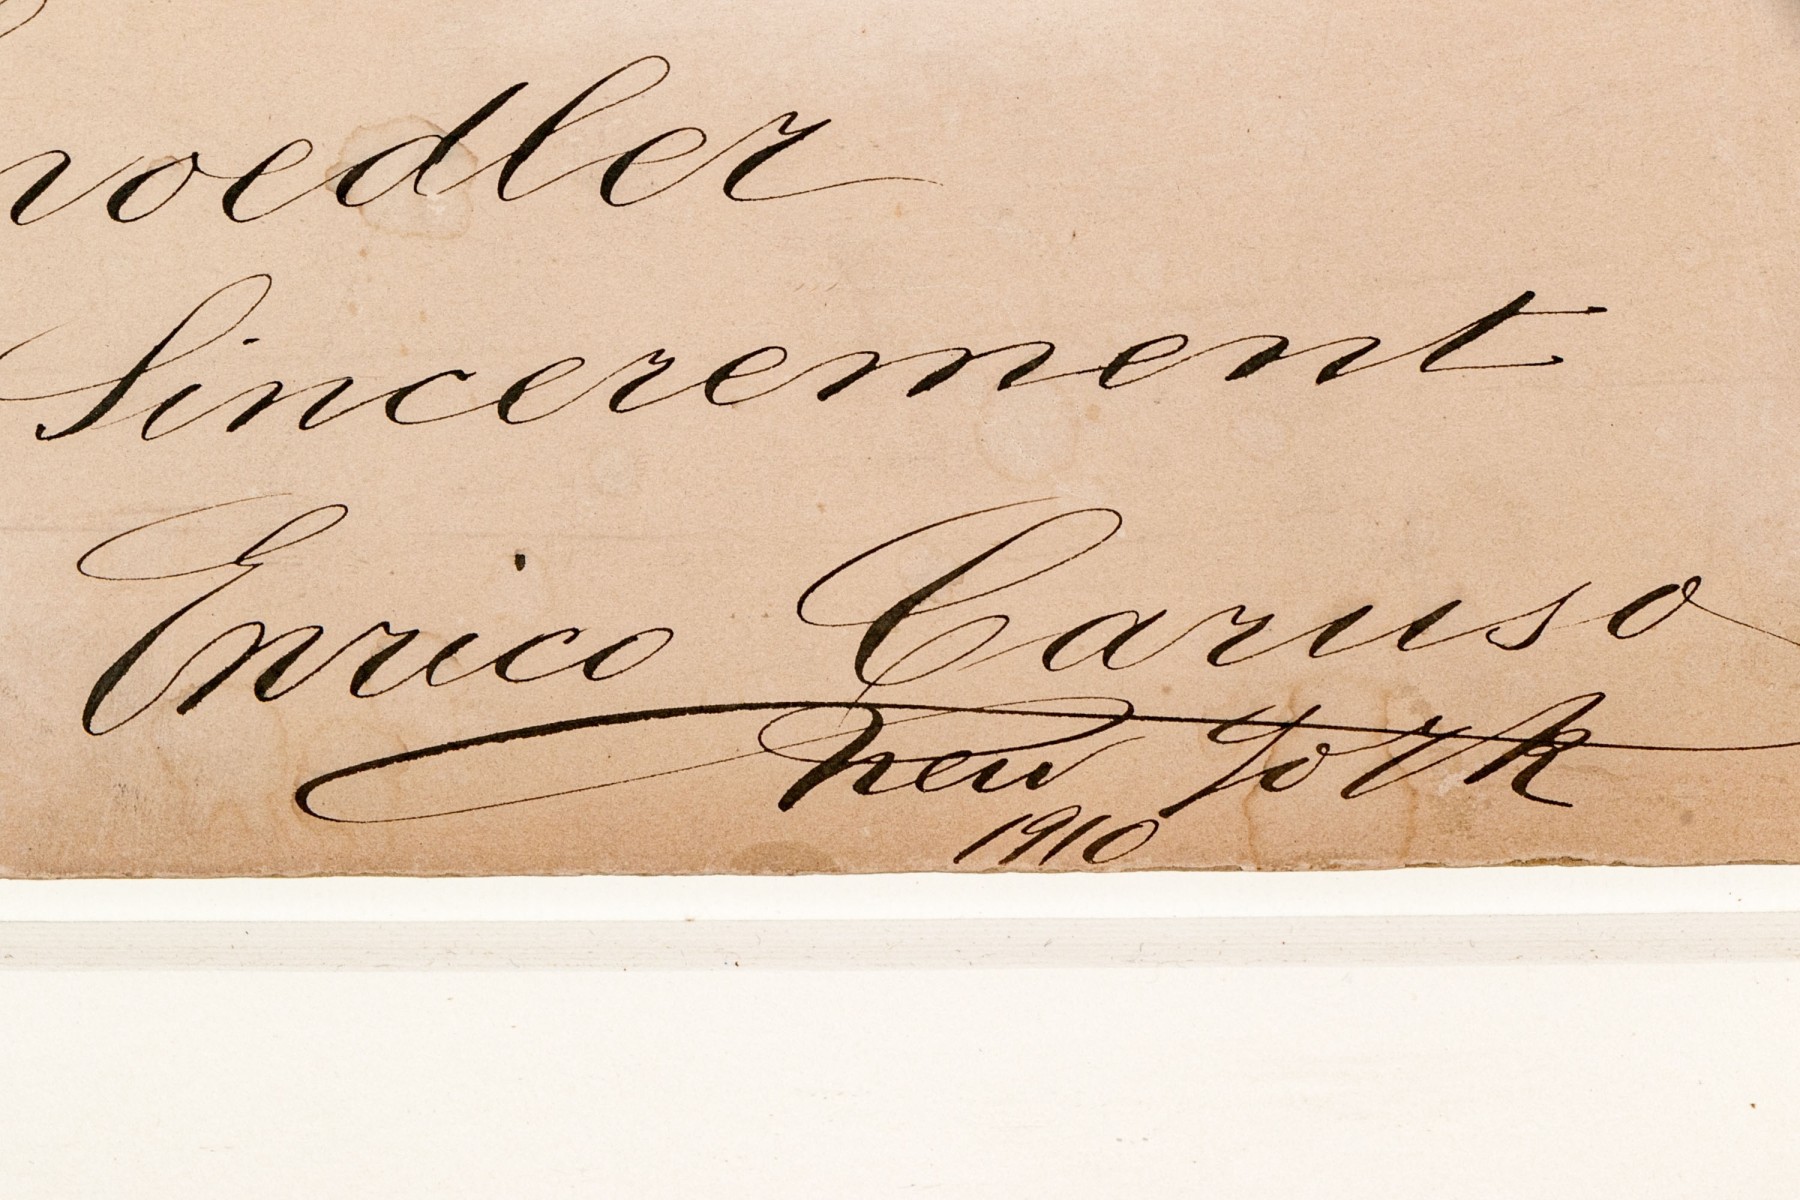 noedler
Sincerement
Enrico Caruso
New York
1910